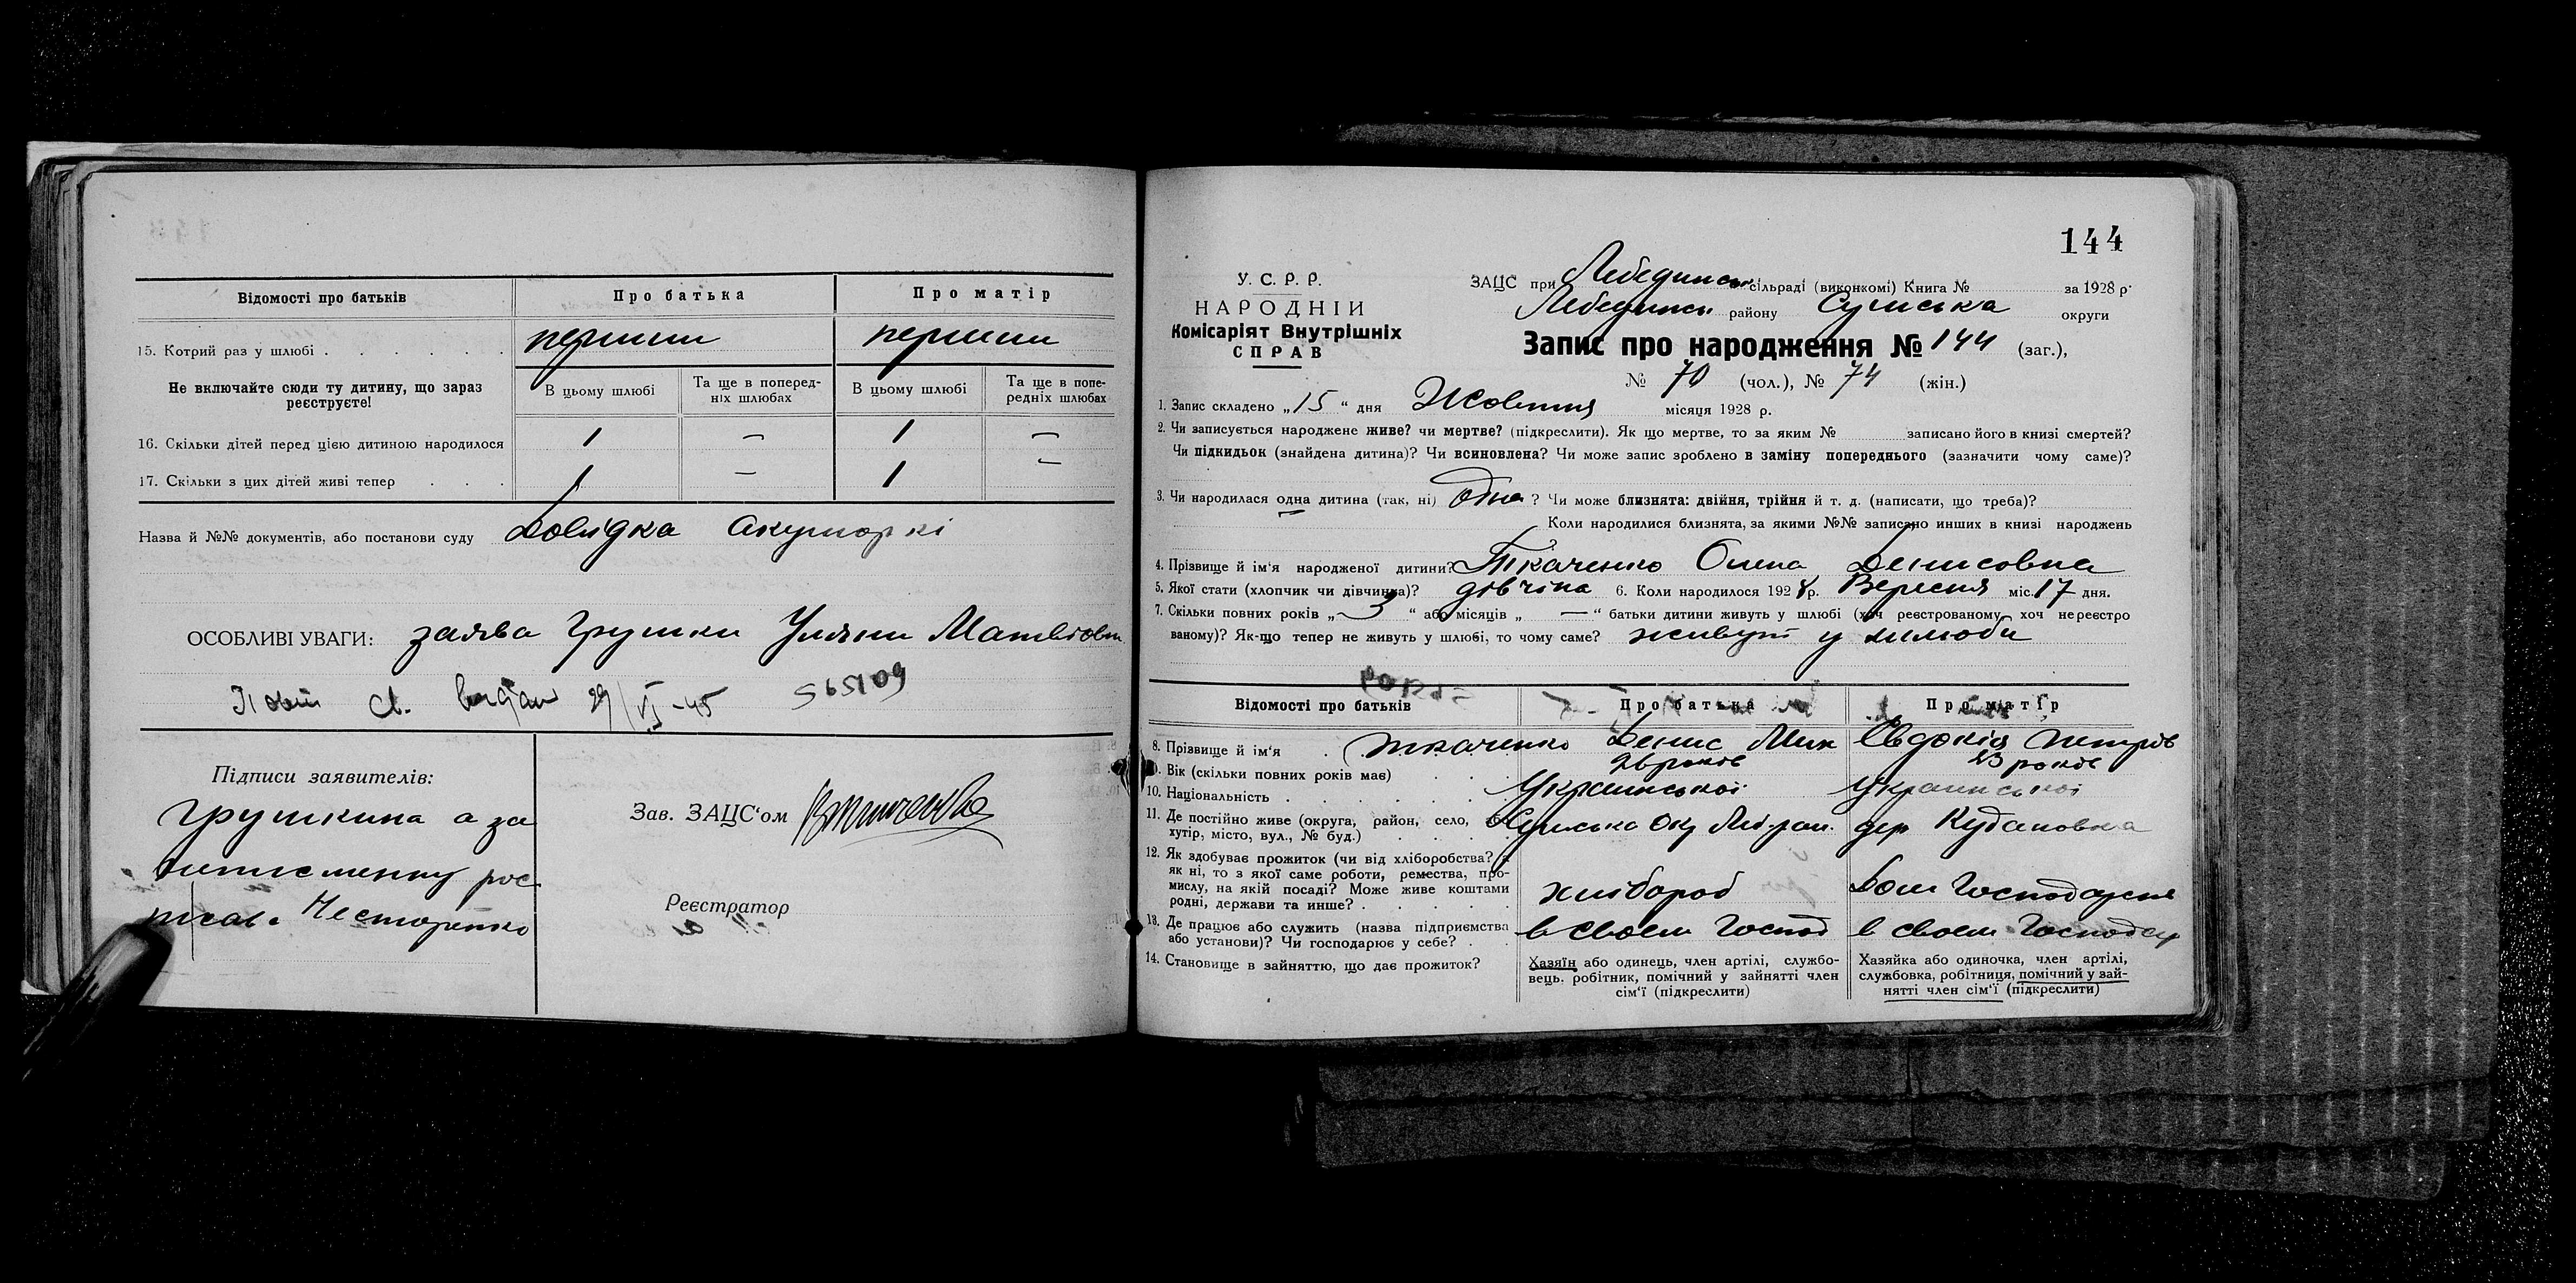 Відомості про батьків
Про батька
Про матір
15. Котрий раз у шлюбі . . . . . .
перший
перший
Не включайте сюди ту дитину, що зараз реєструєте!
В цьому шлюбі
Та ще в поперед-
ніх шлюбах
В цьому шлюбі
Та ще в попе-
редніх шлюбах
16. Скільки дітей перед цією дитиною народилося 1 — 1 —
17. Скільки з цих дітей живі тепер . . . 1 — 1 —
Назва й №№ документів, або постанови суду Довідка акушоркі
ОСОБЛИВІ УВАГИ: заява Грушки Уляни
29/VI-45 565109
Підписи заявителів:
Грушкина а за
писменну рос
Несторенко
Зав. ЗАЦС'ом
Реєстратор
144
У. С. Р. Р.
НАРОДНІЙ
Комісаріят Внутрішніх
СПРАВ
ЗАЦС при Лебединськ сільраді (виконкомі) Книга № за 1928 р.
Лебединськ району Сумська округи
Запис про народження № 144 (заг.),
№ 70 (чол.), № 74 (жін.)
1. Запис складено „15“ дня Жовтня місяця 1928 р.
2. Чи записується народжене живе? чи мертве? (підкреслити). Як що мертве, то за яким № записано його в книзі смертей?
Чи підкидьок (знайдена дитина)? Чи всиновлена? Чи може запис зроблено в заміну попереднього (зазначити чому саме)?
3. Чи народилася одна дитина (так, ні) одна ? Чи може близнята: двійня, трійня й т. д. (написати, що треба)?
Коли народилися близнята, за якими №№ записано инших в книзі народжень
4. Прізвище й ім'я народженої дитини? Ткаченко Олена Денисовна
5. Якої стати (хлопчик чи дівчинка)? дівчіна 6. Коли народилося 1928 р. Вересня міс. 17 дня.
7. Скільки повних років „ 3 “ або місяців „ — “ батьки дитини живуть у шлюбі (хоч реєстрованому, хоч нереєстро
ваному)? Як-що тепер не живуть у шлюбі, то чому саме? живут у шлюби
Відомості про батьків
Про батька
Про матір
8. Прізвище й ім'я . Ткаченко Денис Мик
Євдокія Петрів
9. Вік (скільки повних років має) . . . 26 років
23 років
10. Національність . . . . . . Украинськоі
Украинськоі
11. Де постійно живе (округа, район, село, або
хутір, місто, вул., № буд.) . . .
Сумська Окр
12. Як здобуває прожиток (чи від хліборобства? а
як ні, то з якої саме роботи, ремества, про-
мислу, на якій посаді? Може живе коштами
родні, держави та инше? . . . . .
хлібороб
Дом Господарня
13. Де працює або служить (назва підприємства
або установи)? Чи господарює у себе? . .
в своем Господ
в своем Господар
14. Становище в зайняттю, що дає прожиток?
Хазяїн або одинець, член артілі, службо-
вець. робітник, помічний у зайнятті член
сім'ї (підкреслити)
Хазяйка або одиночка, член артілі,
службовка, робітниця, помічний у зай-
нятті член сім'ї (підкреслити)